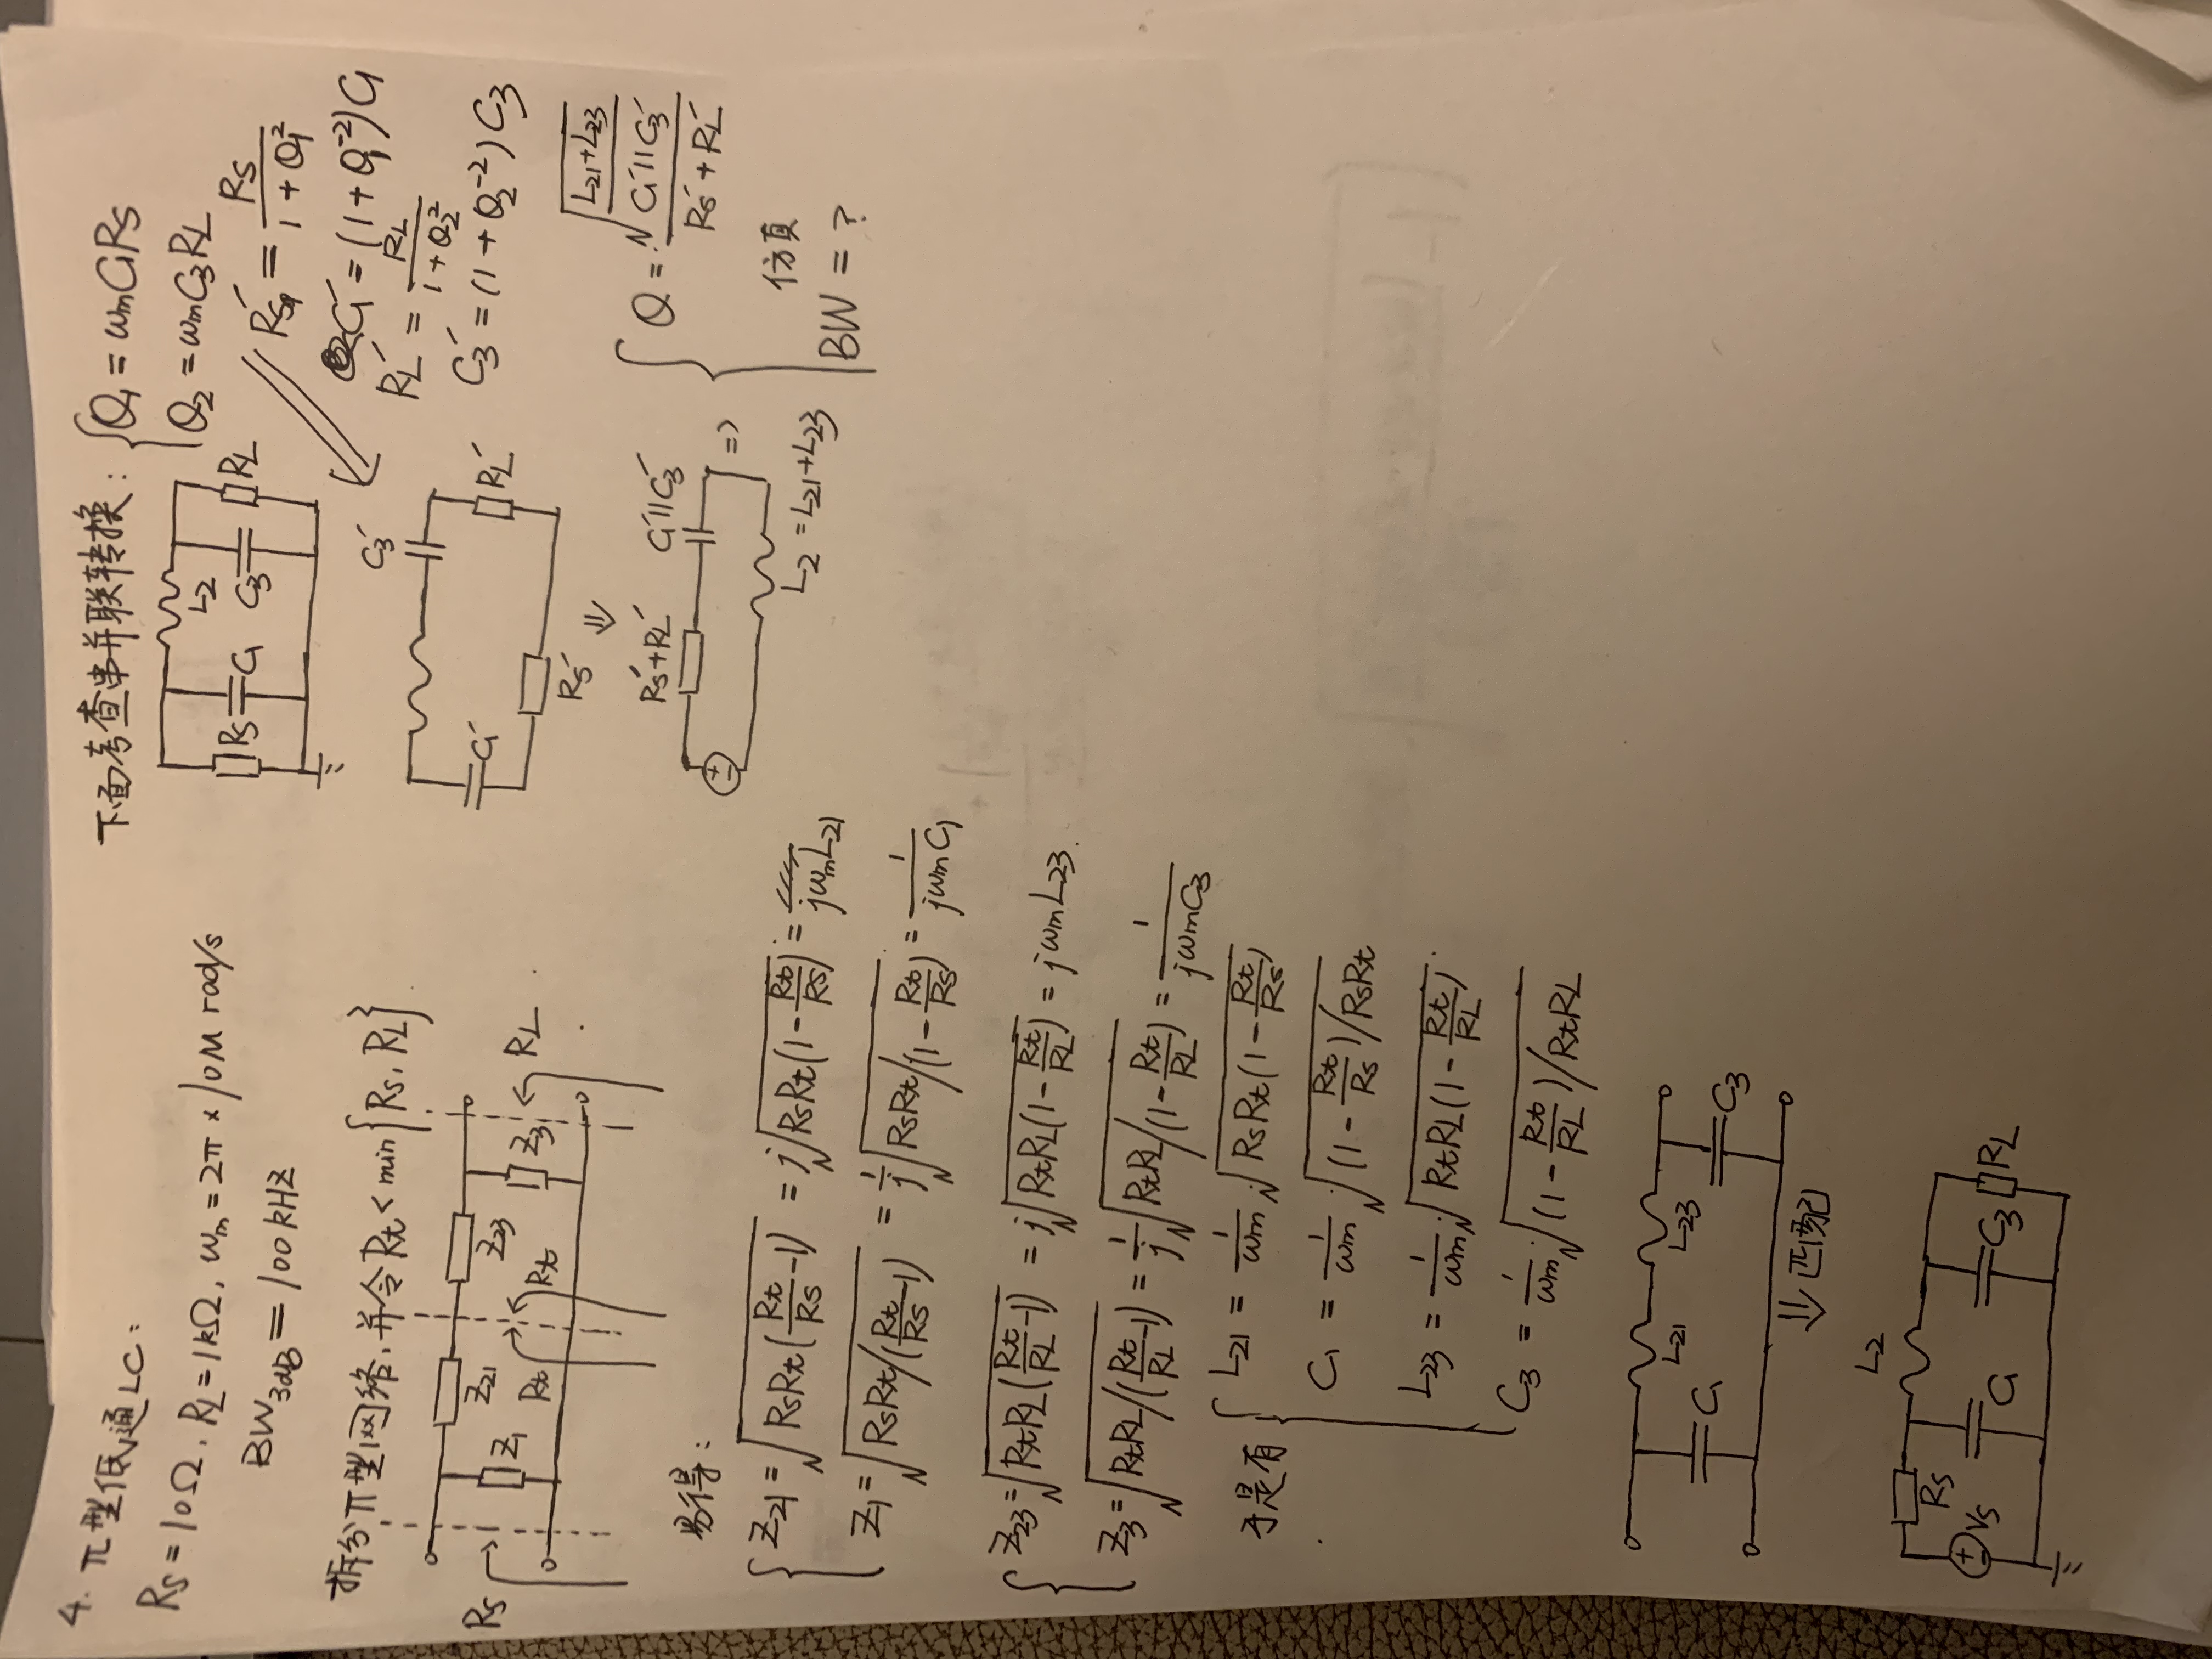 4. π型低通LC:
Rs = 10Ω, RL = 1kΩ, ωm = 2π × 10M rad/s
BW3dB = 100kHz
拆分π型网络, 并令Rt < min{Rs, RL}
Z21 Z23
Rs Z1 Rt Rt Z3 RL
易得:
Z21 = √(RsRt(Rt/Rs - 1)) = j√(RsRt(1 - Rt/Rs)) = jωmL21
Z1 = √(RsRt/(Rt/Rs - 1)) = 1/j √(RsRt/(1 - Rt/Rs)) = 1/(jωmC1)
Z23 = √(RtRL(Rt/RL - 1)) = j√(RtRL(1 - Rt/RL)) = jωmL23.
Z3 = √(RtRL/(Rt/RL - 1)) = 1/j √(RtRL/(1 - Rt/RL)) = 1/(jωmC3)
于是有
L21 = 1/ωm √(RsRt(1 - Rt/Rs))
C1 = 1/ωm √((1 - Rt/Rs)/RsRt)
L23 = 1/ωm √(RtRL(1 - Rt/RL))
C3 = 1/ωm √((1 - Rt/RL)/RtRL)
L21 L23
C1 C3
⇓ 匹配
L2
Rs
+ - Vs C1 C3 RL
下面考查串并联转换:
Q1 = ωmC1Rs
Q2 = ωmC3RL
L2
Rs C1 C3 RL
Rs' = Rs/(1 + Q1²)
C1' = (1 + Q1⁻²)C1
RL' = RL/(1 + Q2²)
C3' = (1 + Q2⁻²)C3
C3'
C1' RL'
Rs'
⇓
Rs'+RL' C1'||C3'
+ - =>
L2 = L21+L23
Q = √((L21+L23)/(C1'||C3'))/(Rs' + RL')
仿真
BW = ?